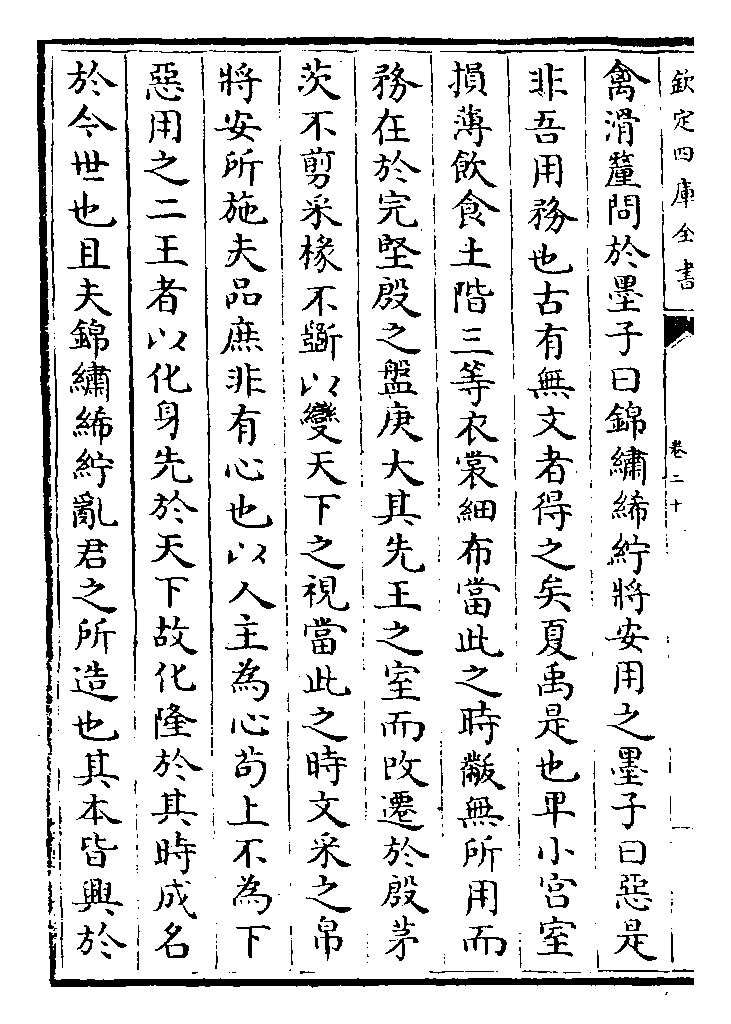 欽定四庫全書
卷二十
禽滑釐問於墨子曰錦繡絺紵將安用之墨子曰惡是
非吾用務也古有無文者得之矣夏禹是也卑小宮室
損薄飲食土階三等衣裳細布當此之時黻無所用而
務在於完堅殷之盤庚大其先王之室而改遷於殷茅
茨不剪采椽不斵以變天下之視當此之時文采之帛
將安所施夫品庶非有心也以人主為心茍上不為下
惡用之二王者以化身先於天下故化隆於其時成名
於今世也且夫錦繡絺紵亂君之所造也其本皆興於